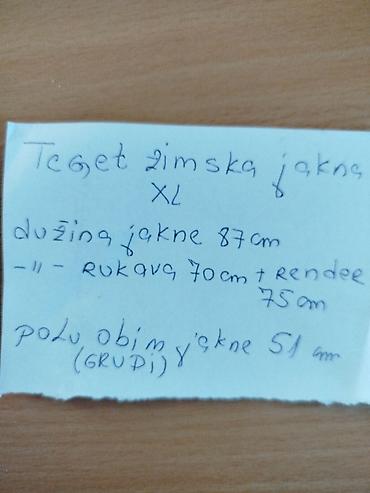 Teget zimska jakna
XL
dužina jakne 87cm
-〃- RUKAVA 70cm + Render
75cm
polu obim jakne 51 cm
(GRUDI)